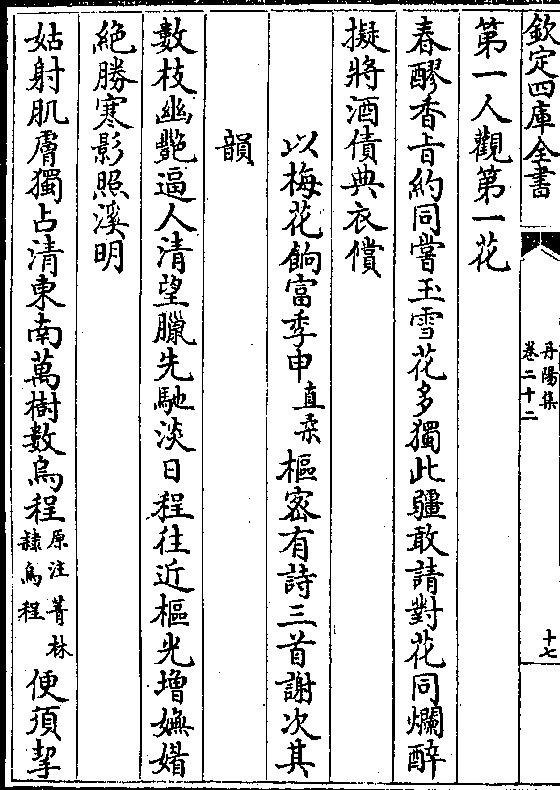 欽定四庫全書
丹陽集
卷二十二
十七
第一人觀第一花
春醪香旨約同嘗玉雪花多獨此疆敢請對花同爛醉
擬將酒債典衣償
以梅花餉富季申直柔樞密有詩三首謝次其
韻
數枝幽艶逼人清望臘先馳淡日程往近樞光増嫵媚
絶勝寒影照溪明
姑射肌膚獨占清東南萬樹數烏程原注菁林隷烏程便須挈